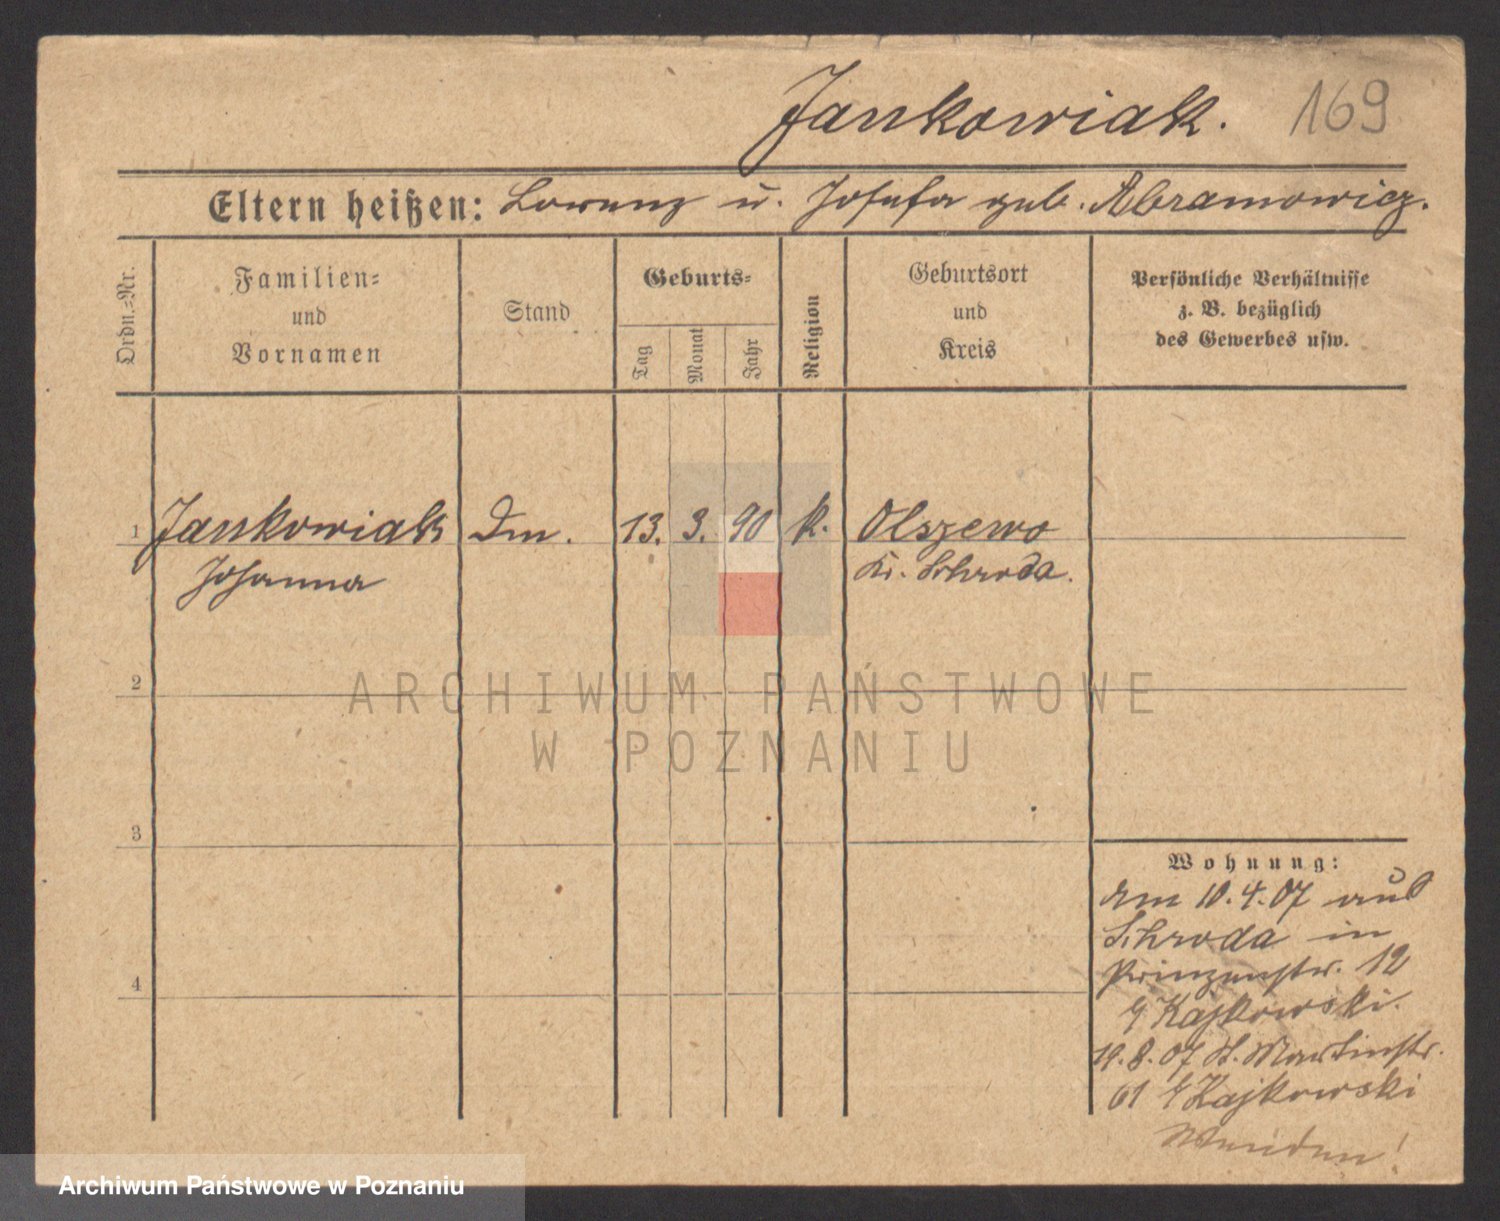 Jankowiak. 169
Eltern heißen: Lorenz u. Josefa geb. Abramowicz.
Ordn.=Nr.
Familien=
und
Vornamen
Stand
Geburts=
Tag
Monat
Jahr
Religion
Geburtsort
und
Kreis
Persönliche Verhältnisse
z. B. bezüglich
des Gewerbes usw.
1 Jankowiak Dm. 13. 3. 90 k. Olszewo
Johanna Kr. Schroda.
2
ARCHIWUM PAŃSTWOWE
W POZNANIU
3
Wohnung:
am 10.4.07 aus
Schroda in
Prinzenstr. 12
Kajkowski.
19.8.07 St. Martinstr.
61 Kajkowski
Wenden!
4
Archiwum Państwowe w Poznaniu